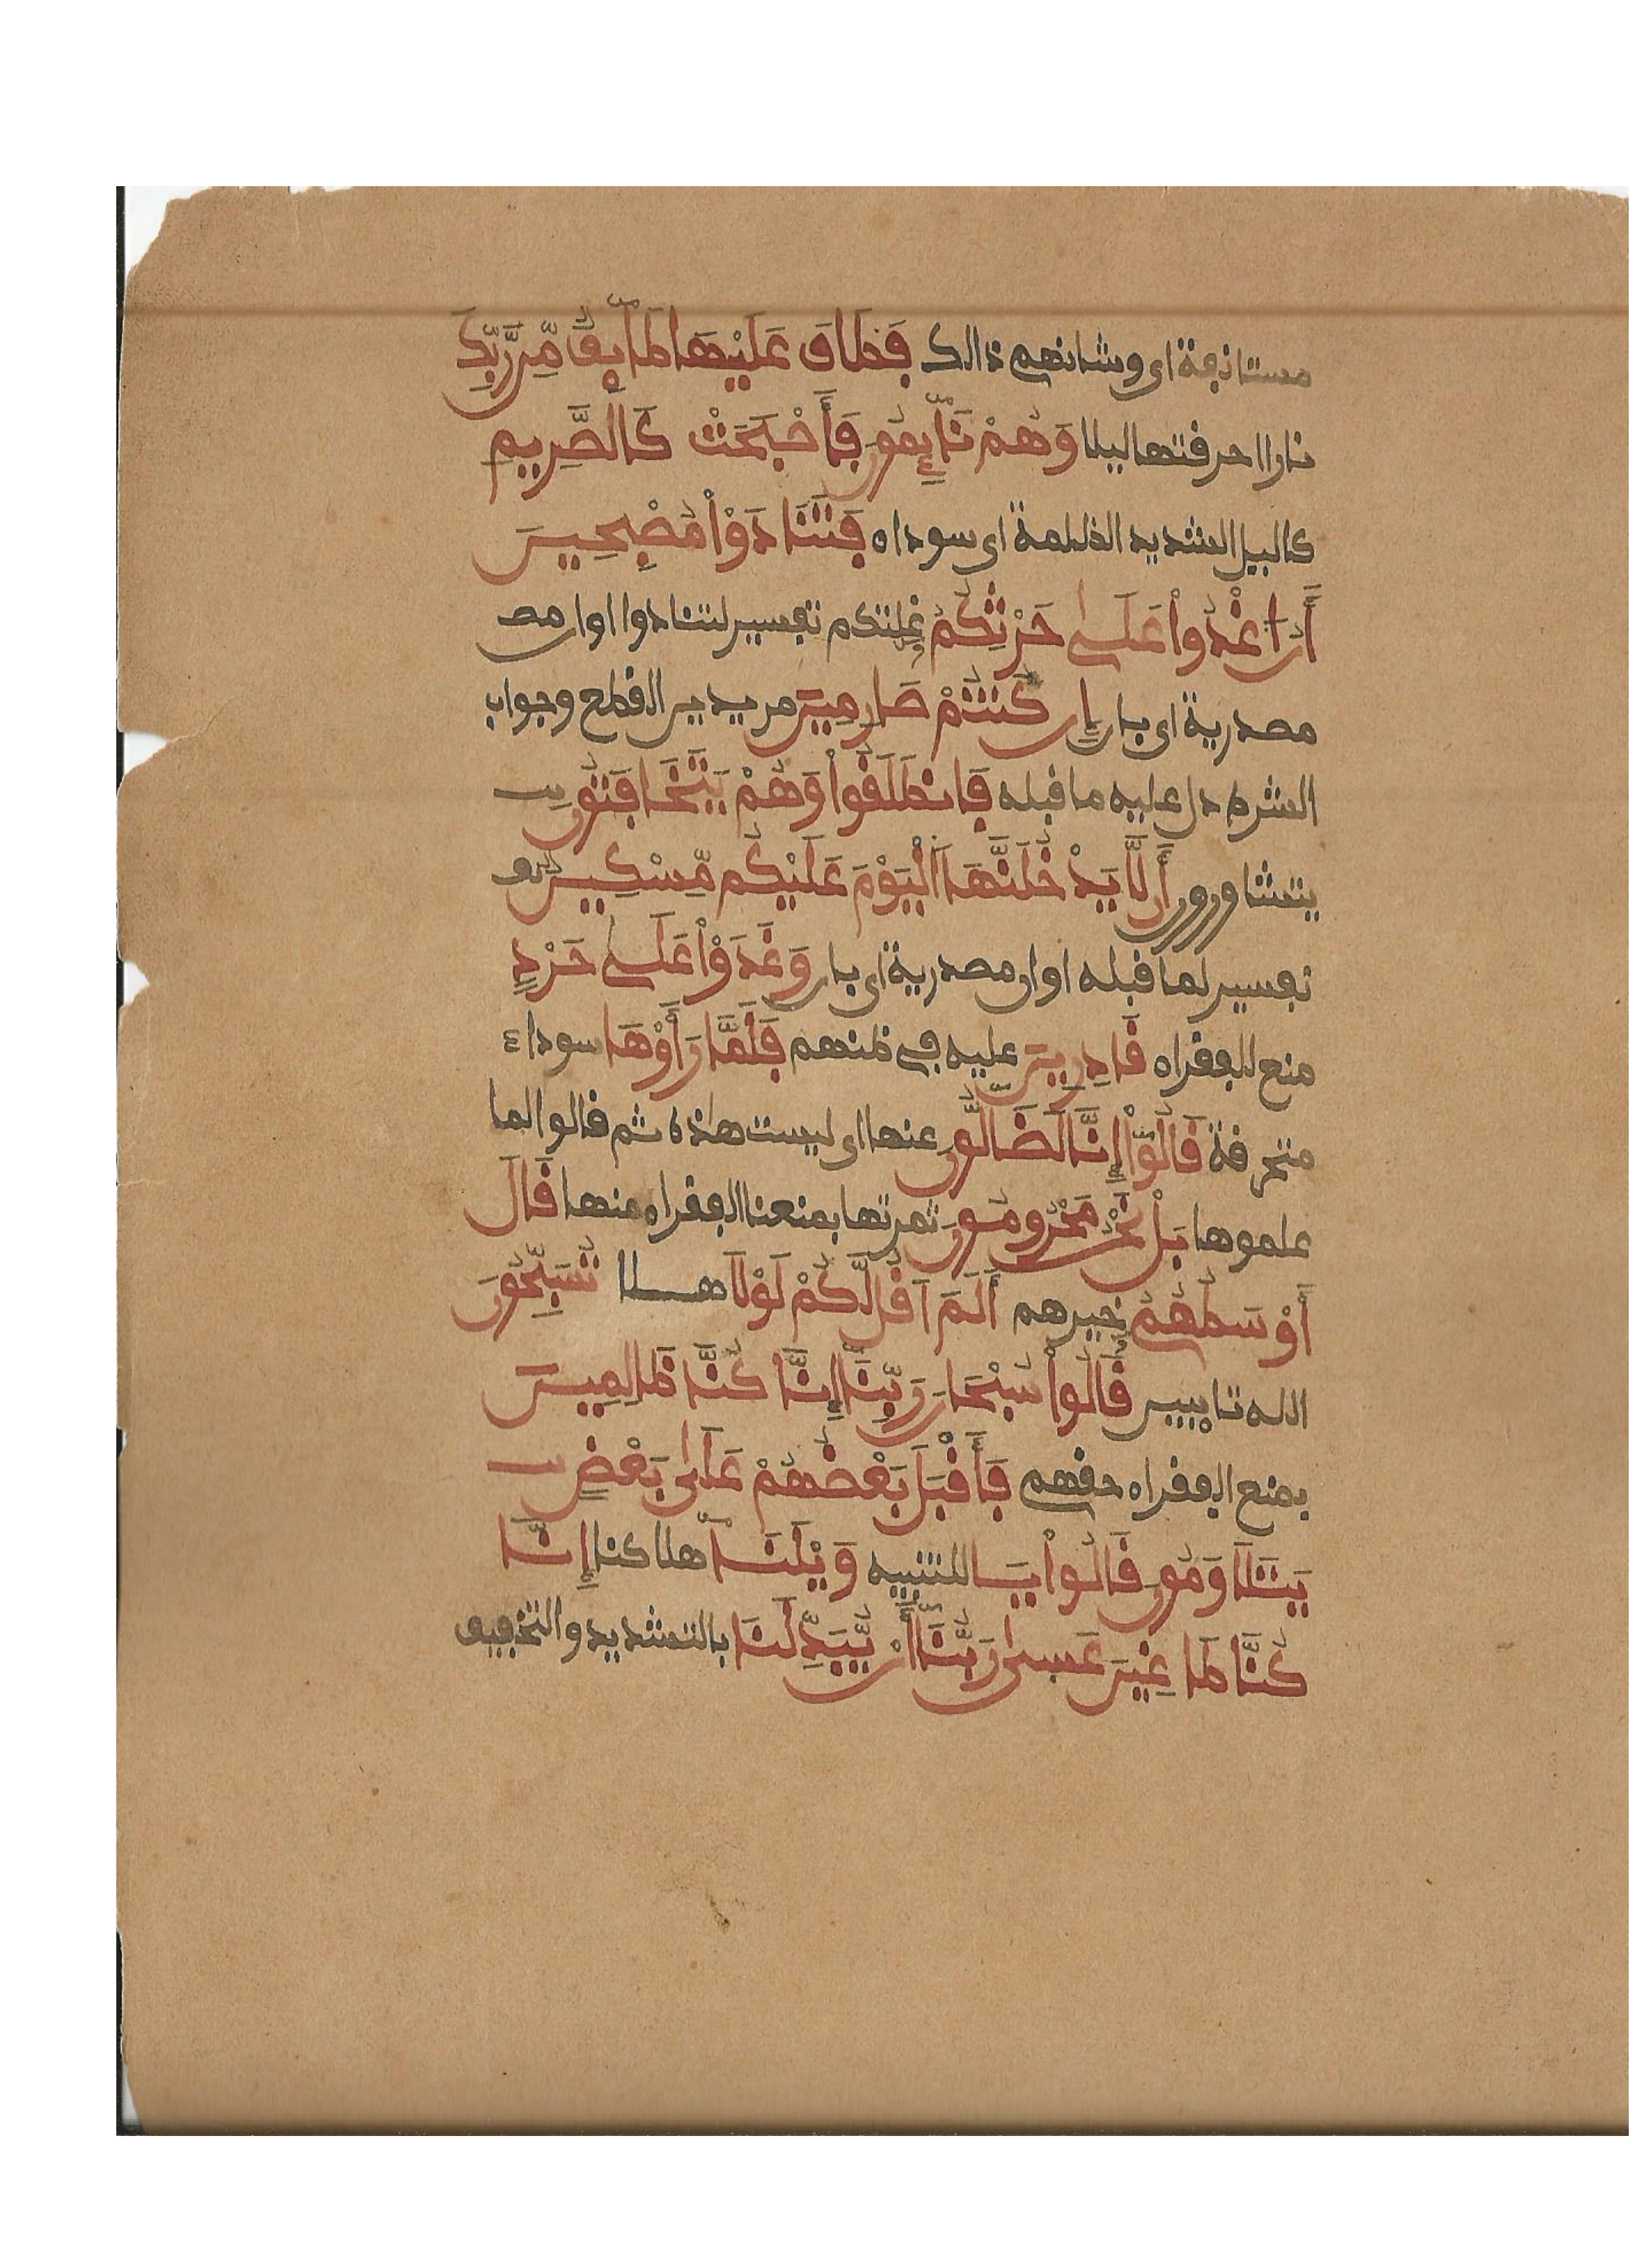 مستانفة اى وشانهم ذالك فَطَافَ عَلَيْهَا طَآئِفٌ مِّن رَّبِّكَ
نارا احرقتها ليلا وَهُمْ نَآئِمُونَ فَأَصْبَحَتْ كَالصَّرِيمِ
كاليل الشديد الظلمة اى سوداء فَتَنَادَوْاْ مُصْبِحِينَ
أَنُ اغْدُواْ عَلَىٰ حَرْثِكُمْ غلتكم تفسير لتنادوا اوان مصـ
مصدرية اى بان إِن كُنتُمْ صَارِمِينَ مريدين القطع وجواب
الشرط دل عليه ما قبله فَانطَلَقُواْ وَهُمْ يَتَخَافَتُونَ
يتشاورون أَن لَّا يَدْخُلَنَّهَا الْيَوْمَ عَلَيْكُم مِّسْكِينٌ
تفسير لما قبله اوان مصدرية اى بان وَغَدَوْاْ عَلَىٰ حَرْدٍ
منع للفقراء قَادِرِينَ عليه في ظنهم فَلَمَّا رَأَوْهَا سوداء
متحرقة قَالُوٓاْ إِنَّا لَضَآلُّونَ عنها اى ليست هاذه ثم قالوا لما
علموها بَلْ نَحْنُ مَحْرُومُونَ ثمرتها بمنعنا الفقراء منها قَالَ
أَوْسَطُهُمْ خيرهم أَلَمَ اَقُل لَّكُمْ لَوْلَا هـــلا تُسَبِّحُونَ
الله تايبين قَالُواْ سُبْحَانَ رَبِّنَا إِنَّا كُنَّا ظَالِمِينَ
بمنع الفقراء حقهم فَأَقْبَلَ بَعْضُهُمْ عَلَىٰ بَعْضٍ
يَتَلَاوَمُونَ قَالُواْ يَـا للتنبيه وَيْلَنَـآ هلاكنا إِنَّا
كُنَّا طَاغِينَ عَسَىٰ رَبُّنَآ أَنْ يُّبَدِّلَنَا بالتشديد والتخفيف